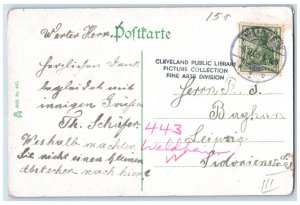 158
Postkarte
Werter Herr
Herzlichen Dank
beglückt mit
innigen Grüßen
Th. Schäfer
Weshalb machen
Sie nicht einen kleinen
Abstecher nach hier?
CLEVELAND PUBLIC LIBRARY
PICTURE COLLECTION
FINE ARTS DIVISION
Herrn
Leipzig
Sidonienstr
III
443